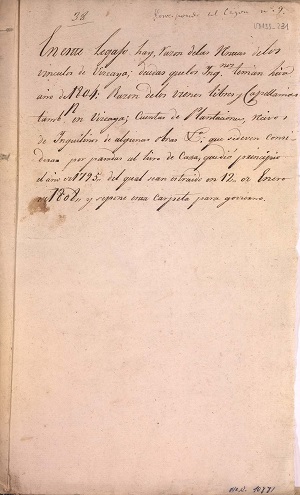 28
Corresponde al Cajon nº 9.
En este Legajo hay, Razon de las Rentas de los
vinculos de Vizcaya; deudas que los Inq.nos tenian hasta
año de 1804: Razon de los vienes libres, y Capellanias
tamb.n en Vizcaya; Cuentas de Plantaciones, Recivos
de Inquilinos de algunas obras &.a que se deven
por partes al libro de Casa, que dió principio
el año de 1795,, del qual se an estraido en 12,, de Enero
de 1808,, y se pone esta Carpeta para govierno.